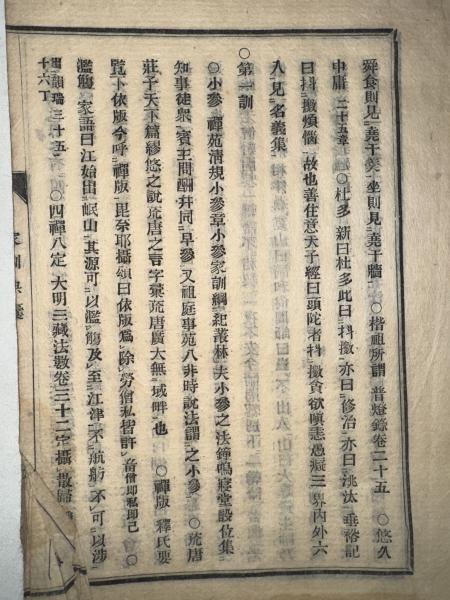 舜食則見堯于羮坐則見堯于牆 ○楷祖所謂 普燈錄卷二十五 ○悠久
中庸二十五章 ○杜多 新曰杜多此曰抖擻亦曰修治亦曰洮汰 垂裕記
曰抖擻煩惱故也善住意天子經曰頭陀者抖擻貪欲嗔恚愚癡三界內外六
入 見名義集
○第一訓
○小參 禪苑清規小參章小參家訓綱紀叢林夫小參之法鐘鳴寢堂設位集
知事徒衆賓主問酬并同早參又祖庭事苑八非時說法謂之小參 ○㡃唐
莊子天下篇繆悠之說㡃唐之言字彙㡃唐廣大無域畔也 ○禪版 釋氏要
覽卜依版今呼禪版毘奈耶攝頌曰依版爲除勞僧私皆許 音僧即私即己 ○
濫觴 家語曰江始出岷山其源可以濫觴及至江津不航舫不可以涉
韻瑞二十五 ○四禪八定 大明三藏法數卷三十二定攝散歸
十六丁
家訓